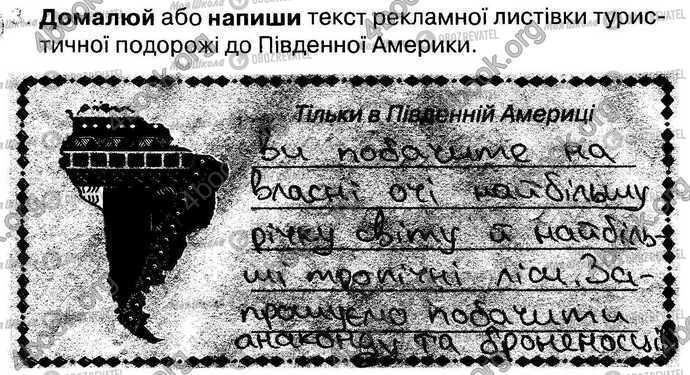 3. Домалюй або напиши текст рекламної листівки турис-
тичної подорожі до Південної Америки.
Тільки в Південній Америці
ви побачите на
власні очі найбільшу
річку світу й найбіль-
ші тропічні ліси. За-
прошуємо побачити
анаконду та броненосця